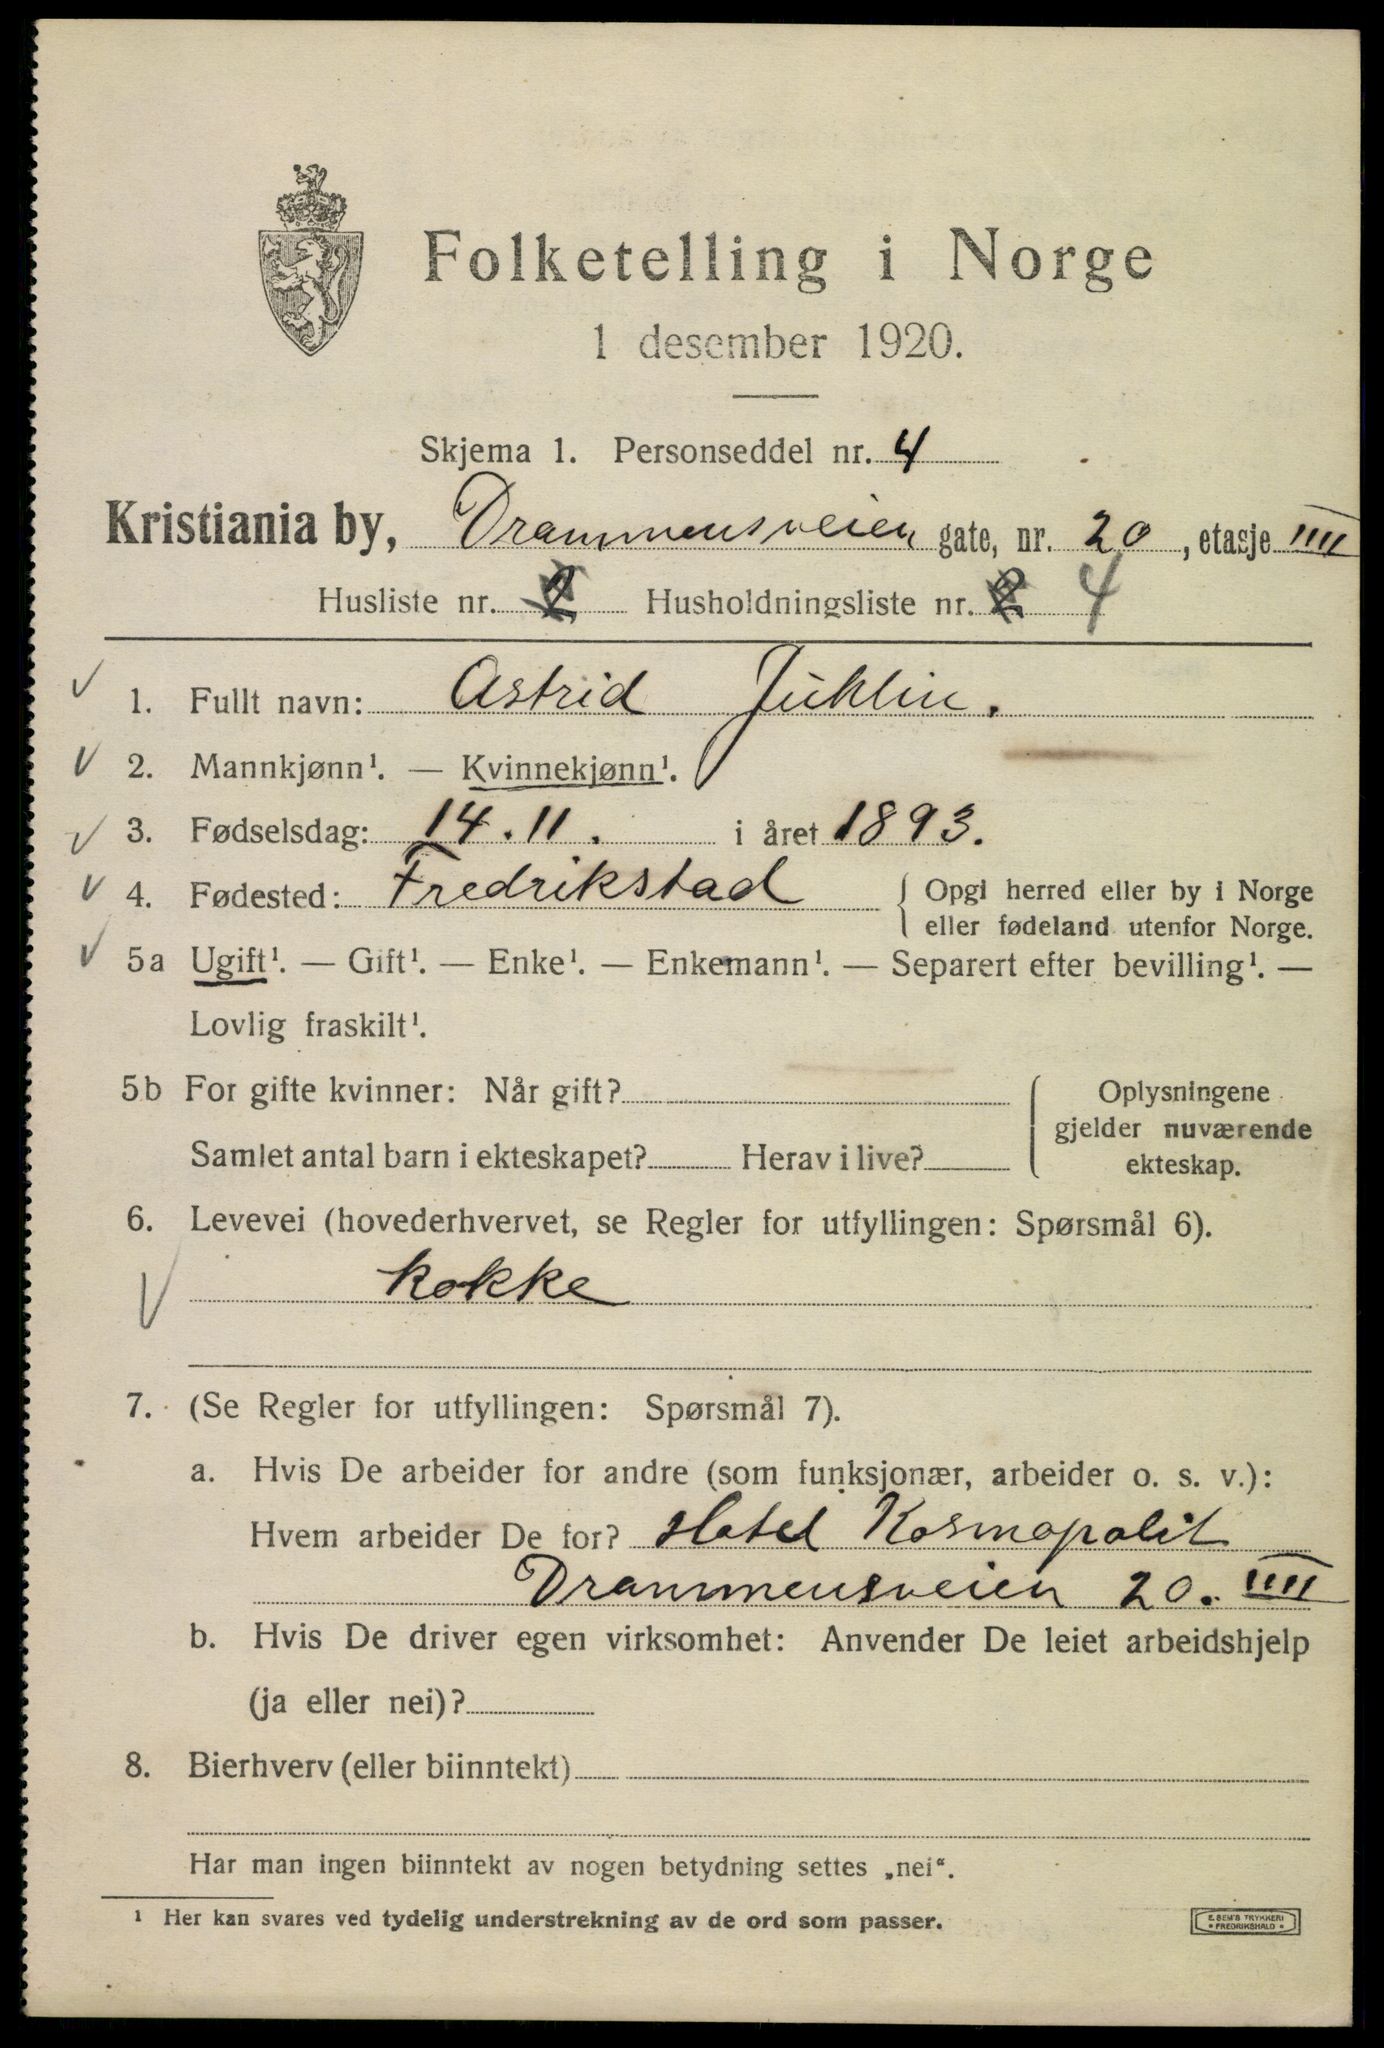 Folketelling i Norge
1 desember 1920.
Skjema 1. Personseddel nr. 4
Kristiania by, Drammensveien gate, nr. 20, etasje IIII
Husliste nr. Husholdningsliste nr. 4
1. Fullt navn: Astrid Juhlin.
2. Mannkjønn¹. — Kvinnekjønn¹.
3. Fødselsdag: 14.11. i året 1893.
4. Fødested: Fredrikstad { Opgi herred eller by i Norge
eller fødeland utenfor Norge.
5a Ugift¹. — Gift¹. — Enke¹. — Enkemann¹. — Separert efter bevilling¹. —
Lovlig fraskilt¹.
5b For gifte kvinner: Når gift? { Oplysningene
gjelder nuværende
Samlet antal barn i ekteskapet? Herav i live? ekteskap.
6. Levevei (hovederhvervet, se Regler for utfyllingen: Spørsmål 6).
Kokke
7. (Se Regler for utfyllingen: Spørsmål 7).
a. Hvis De arbeider for andre (som funksjonær, arbeider o. s. v.):
Hvem arbeider De for? Hotel Kosmopolit
Drammensveien 20. IIII
b. Hvis De driver egen virksomhet: Anvender De leiet arbeidshjelp
(ja eller nei)?
8. Bierhverv (eller biinntekt)
Har man ingen biinntekt av nogen betydning settes „nei“.
¹ Her kan svares ved tydelig understrekning av de ord som passer.
E. SEM'S TRYKKERI
• FREDRIKSHALD •